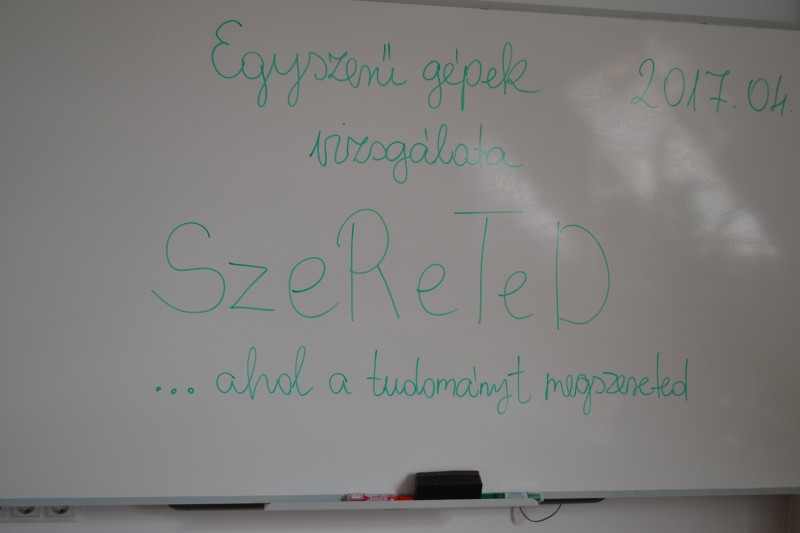 Egyszerű gépek
2017.04.
vizsgálata
SzeReTeD
... ahol a tudományt megszereted